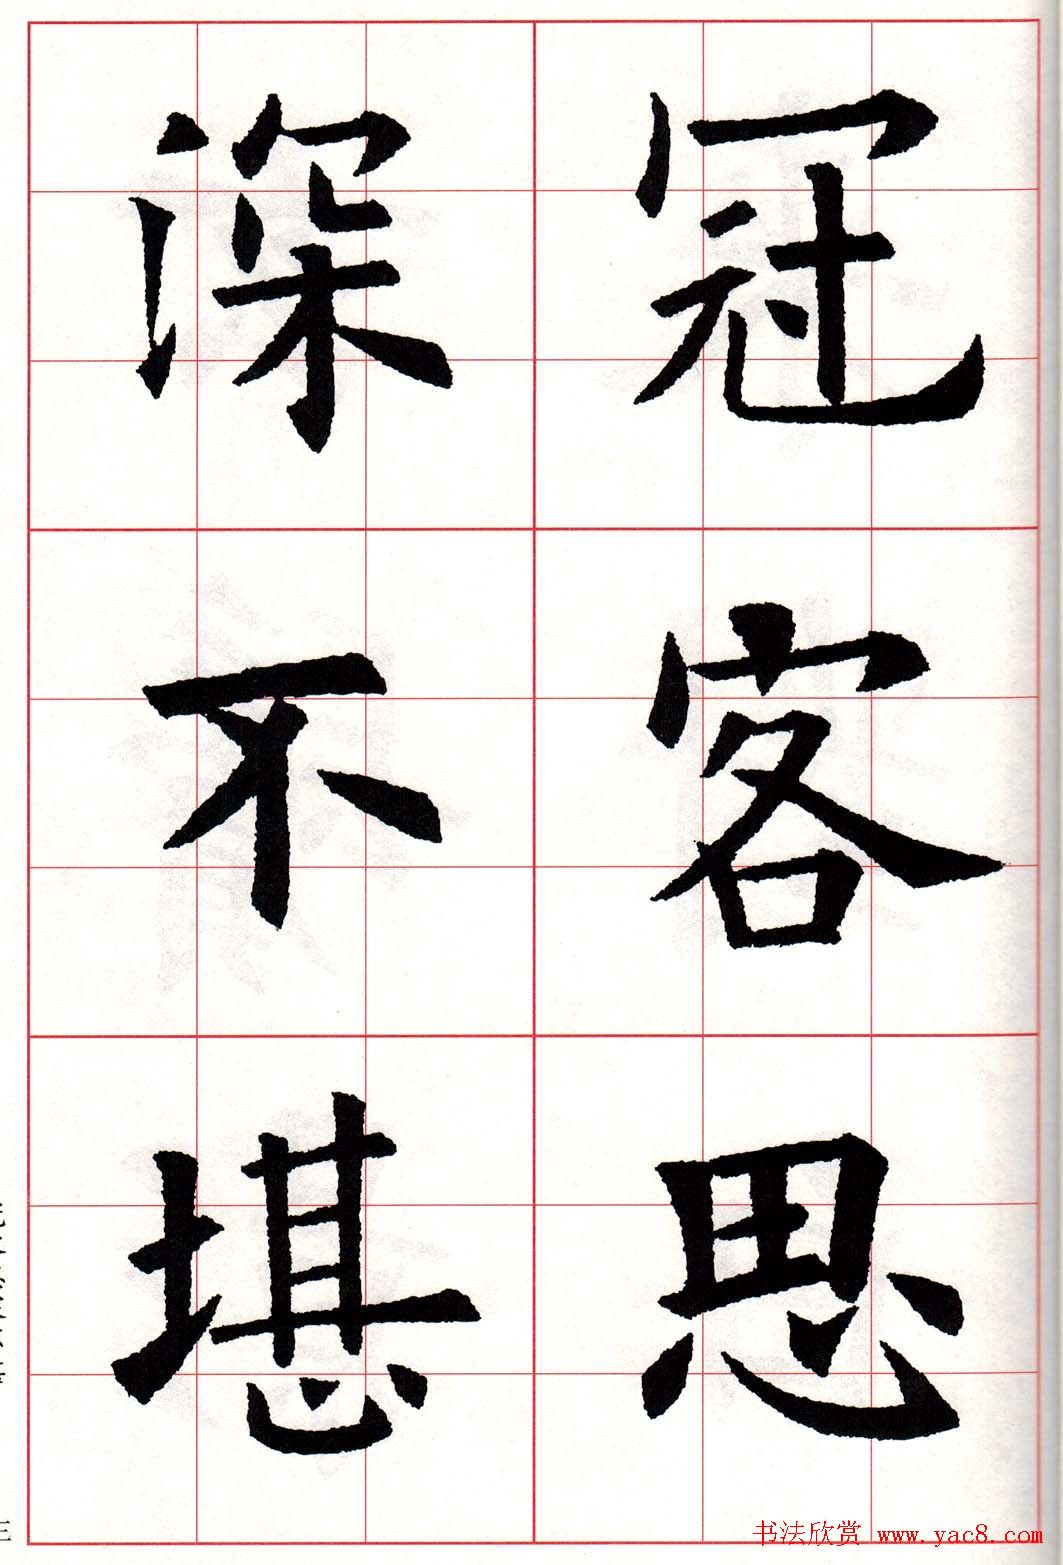 冠客思
深不堪
书法欣赏 www.yac8.com